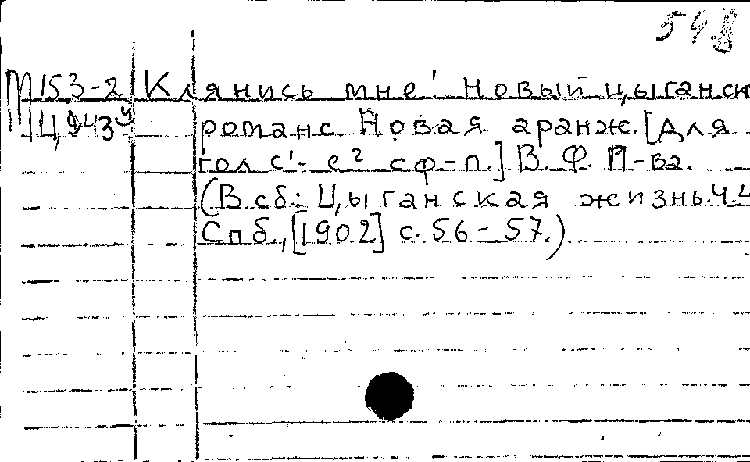 548
М 153-2 Клянись мне! Новый цыганск
Ц943у романс. Новая аранж. [Для
гол. с¹-е² с ф-п.] В. Ф. П-ва.
(В сб.: Цыганская жизнь. Ч. 4
Спб., [1902] с. 56-57.)